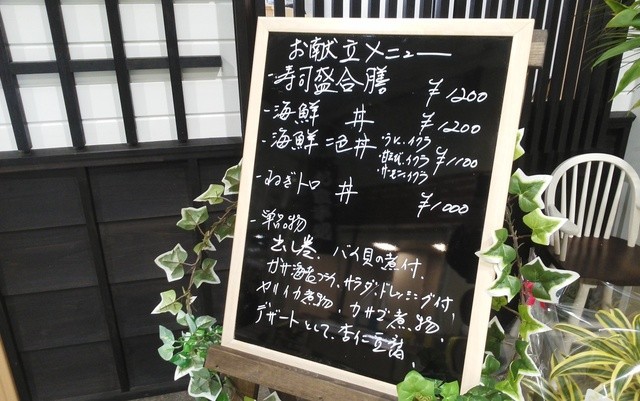 お献立メニュー
・寿司盛合膳 ¥1200
・海鮮 丼 ¥1200
・海鮮二色丼 ・うに、イクラ
・甘えび、イクラ ¥1100
・サーモン、イクラ
・ねぎトロ 丼 ¥1000
・単品物
出し巻、バイ貝の煮付、
ガサ海老フライ、サラダ:ドレッシング付、
ヤリイカ煮物、カサゴ煮物、
デザートとして、杏仁豆腐、